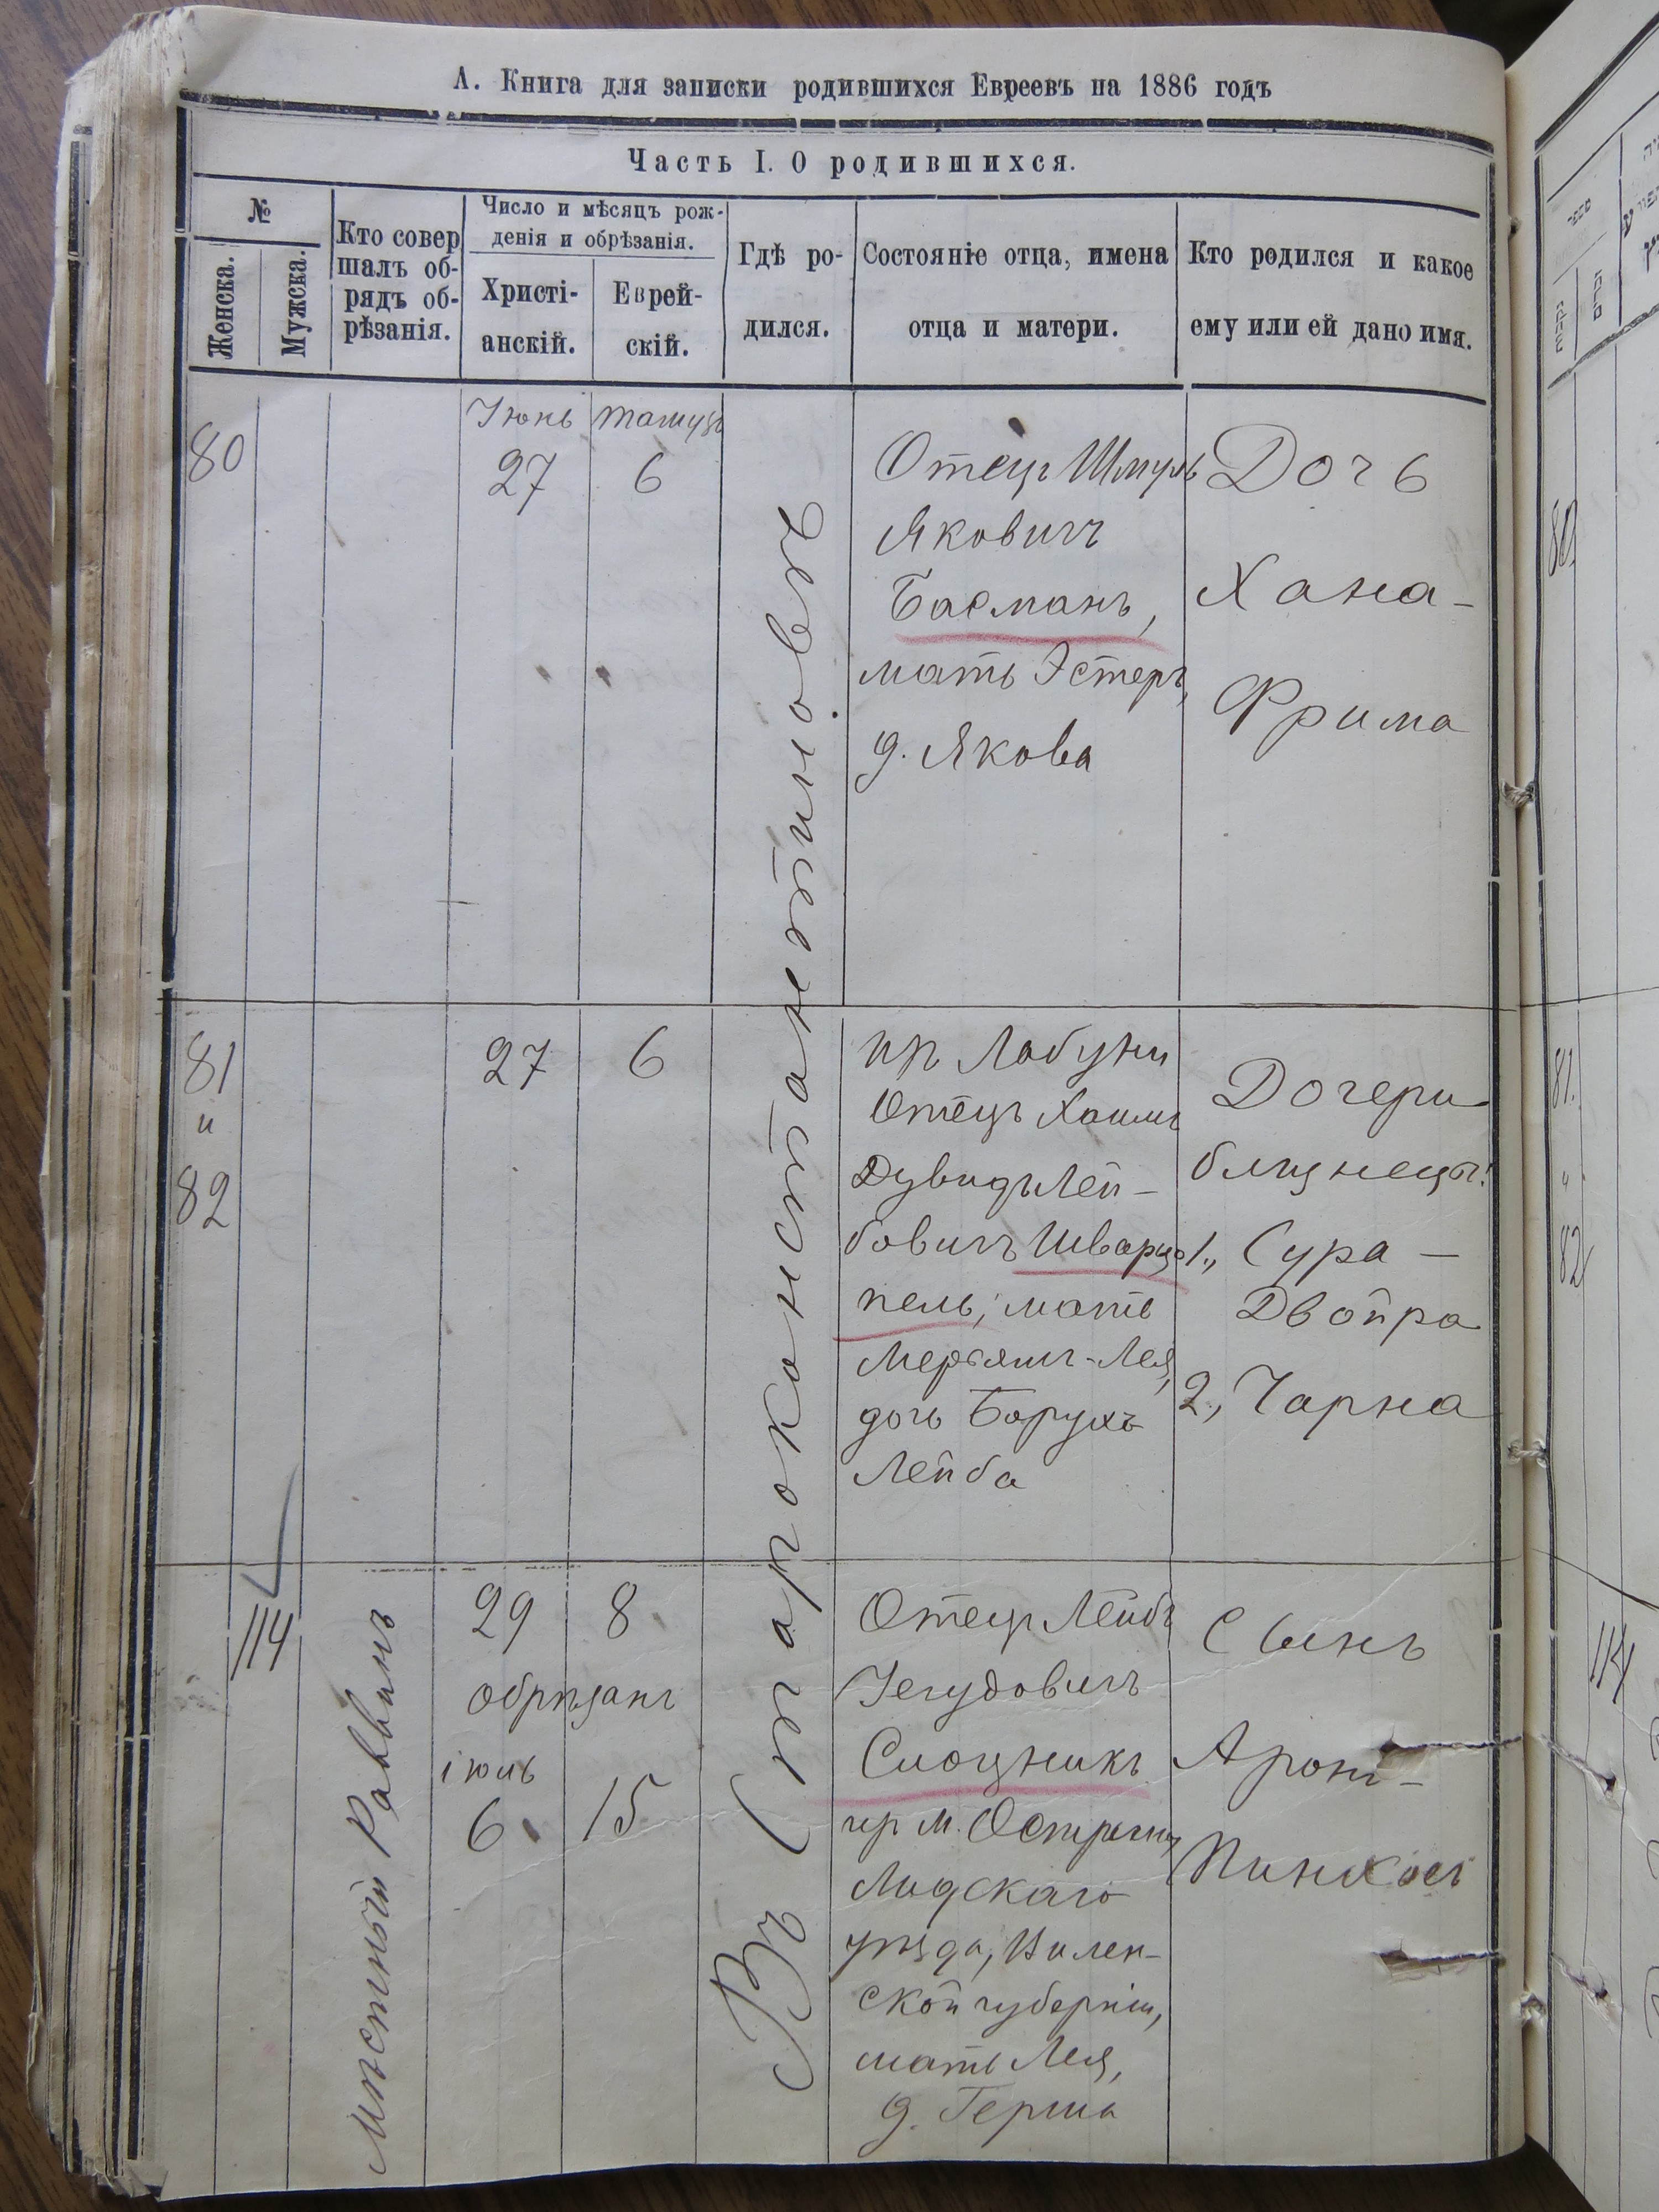 А. Книга для записки родившихся Евреевъ на 1886 годъ
Часть I. О родившихся.
№
Женска.
Мужска.
Кто совер
шалъ об-
рядъ об-
рѣзанія.
Число и мѣсяцъ рож-
денія и обрѣзанія.
Христі-
анскій.
Еврей-
скій.
Гдѣ ро-
дился.
Состояніе отца, имена
отца и матери.
Кто родился и какое
ему или ей дано имя.
Въ Староконстантиновѣ
80
Іюнь
27
Тамузъ
6
Отецъ Шмуль
Яковичъ
Басманъ,
мать Эстеръ,
д. Якова
Дочь
Хана-
Фрима
81
и
82
27
6
пр Лабуни
Отецъ Хаимъ
Дувидъ Лей-
бовичъ Шварца
пель, мать
Мерьямъ-Лея,
дочь Борухъ
Лейба
Дочери
близнецы:
1, Сура-
Двойра
2, Чарна
114
Мѣстный Раввинъ
29
8
обрѣзанъ
іюль
6
15
Отецъ Лейбъ
Іегудовичъ
пр м.
Лидскаго
уѣзда, Вилен-
ской губерніи,
мать Лея,
д. Герша
Сынъ
Аронъ-
Пинхосъ
80
81.
"
82
114